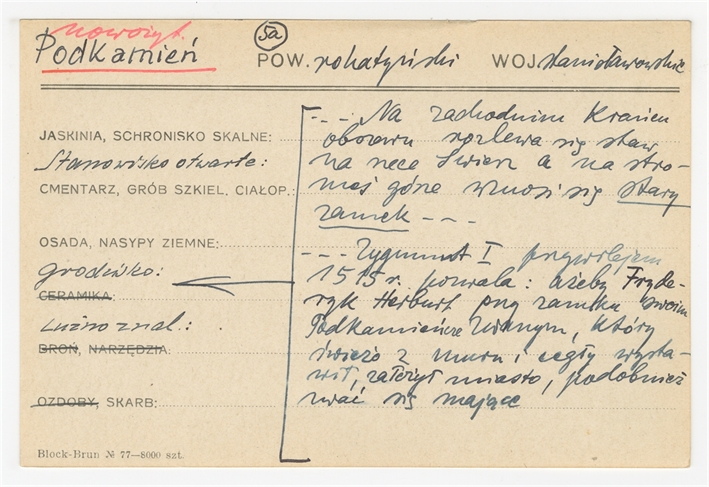 nowożyt.
Podkamień
5a
POW. rohatyński WOJ. stanisławowskie
JASKINIA, SCHRONISKO SKALNE:
Stanowisko otwarte:
CMENTARZ, GRÓB SZKIEL. CIAŁOP.:
OSADA, NASYPY ZIEMNE:
Grodzisko:
CERAMIKA:
Luźno znal.:
BROŃ, NARZĘDZIA:
OZDOBY, SKARB:
- - - Na zachodnim krańcu
obszaru rozlewa się staw
na rzece Świerz a na stro-
mej górze wznosi się stary
zamek - - -
- - - Zygmunt I przywilejem
1515 r. pozwala: ażeby Fryde-
ryk Herburt przy zamku swoim
Podkamieńcze zwanym, który
świeżo z muru i cegły wysta-
wił, założył miasto, podobnież
zwać się mające
Block-Brun № 77—8000 szt.